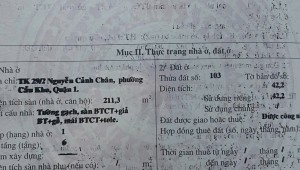 Mục II. Thực trạng nhà ở, đất ở
Nhà ở
chỉ: TK 29/2 Nguyễn Cảnh Chân, phường
Cầu Kho, Quận 1.
diện tích sàn (nhà ở, căn hộ): 211,3 m
cấu nhà: Tường gạch, sàn BTCT+giả
BT+gỗ, mái BTCT+tole.
(hạng) nhà ở: 1
tầng (tầng): 6
xây dựng:
diện tích sàn nhà phụ (nếu có): m
2/ Đất ở
Thửa đất số: 103
Tờ bản đồ số:
Diện tích: 42,2
Sử dụng riêng: 42,2
Sử dụng chung:
Đất được giao hoặc thuê: Được công
Hợp đồng thuê đất (số, ngày, tháng, năm):
Thời gian thuê từ ngày tháng
đến ngày tháng